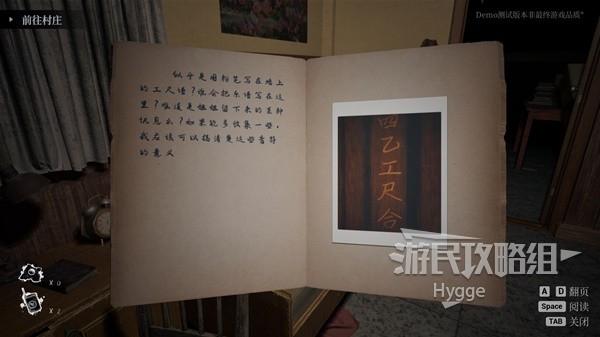 前往村庄
Demo测试版本非最终游戏品质*
似乎是用粉笔写在墙上
的工尺谱?谁会把乐谱写在这
里?难道是姐姐留下来的某种
讯息么?如果能多收集一些，
我应该可以搞清楚这些音符
的意义
四
乙
工
尺
合
X 0
X 2
游民攻略组
Hygge
A D 翻页
Space 阅读
TAB 关闭